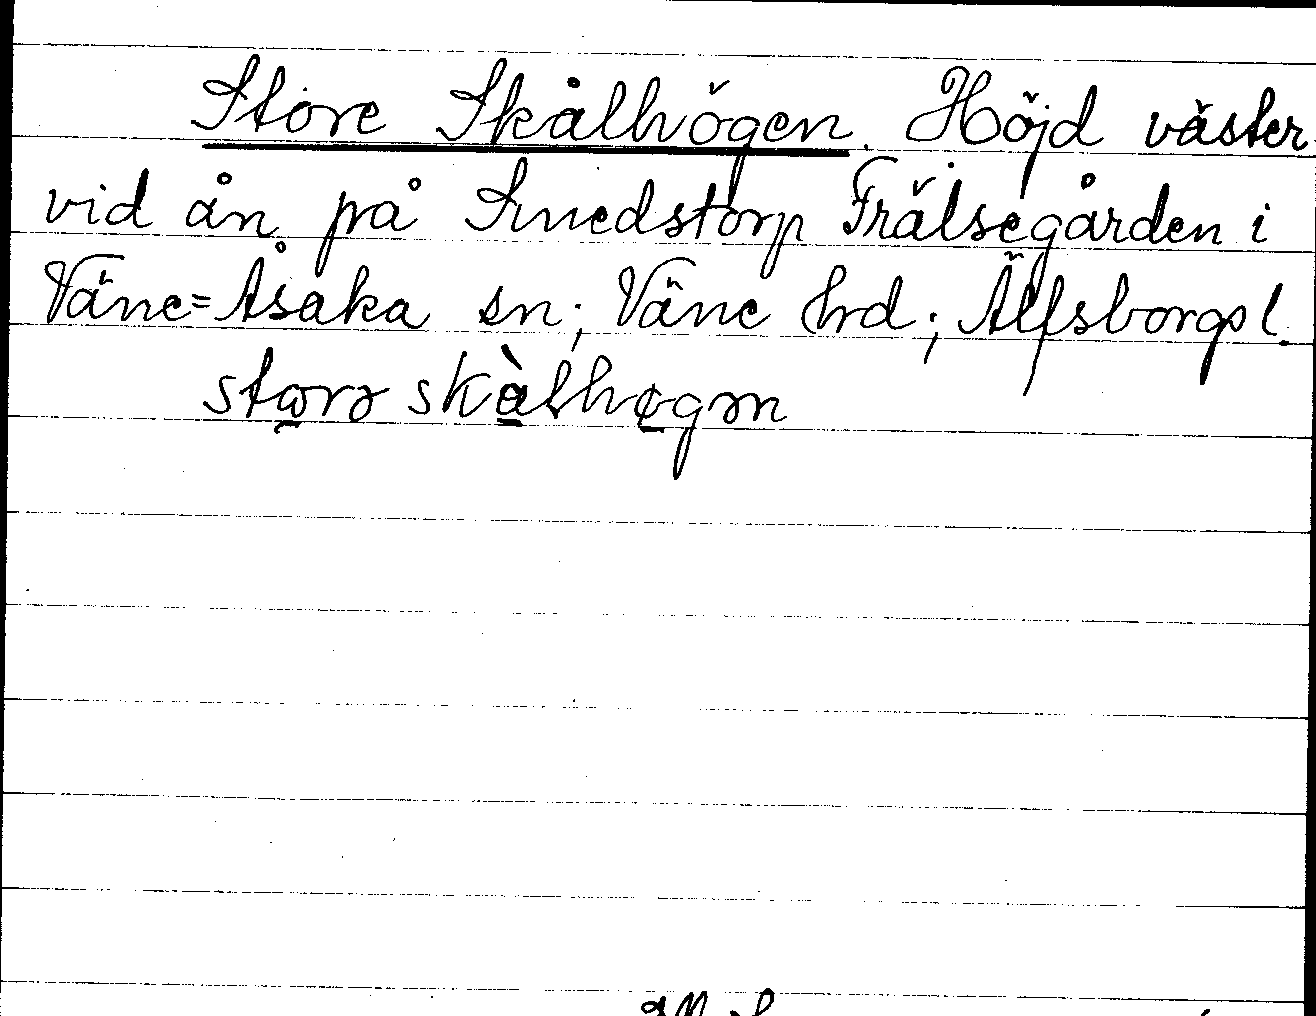 Store Skålhögen. Höjd väster
vid ån på Smedstorp Frälsegården i
Väne=Åsaka sn; Väne hrd; Älfsborgs l.
stọrə skàlhøgən